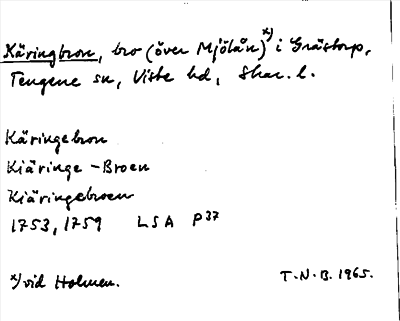 Käringbron, bro (över Mjölån)*) i Grästorp,
Tengene sn, Viste hd, Skar. l.
Käringebron
Kiäringe-Broen
Kiäringebroen
1753, 1759 LSA P37
*) vid Holmen.
T.N.B. 1965.